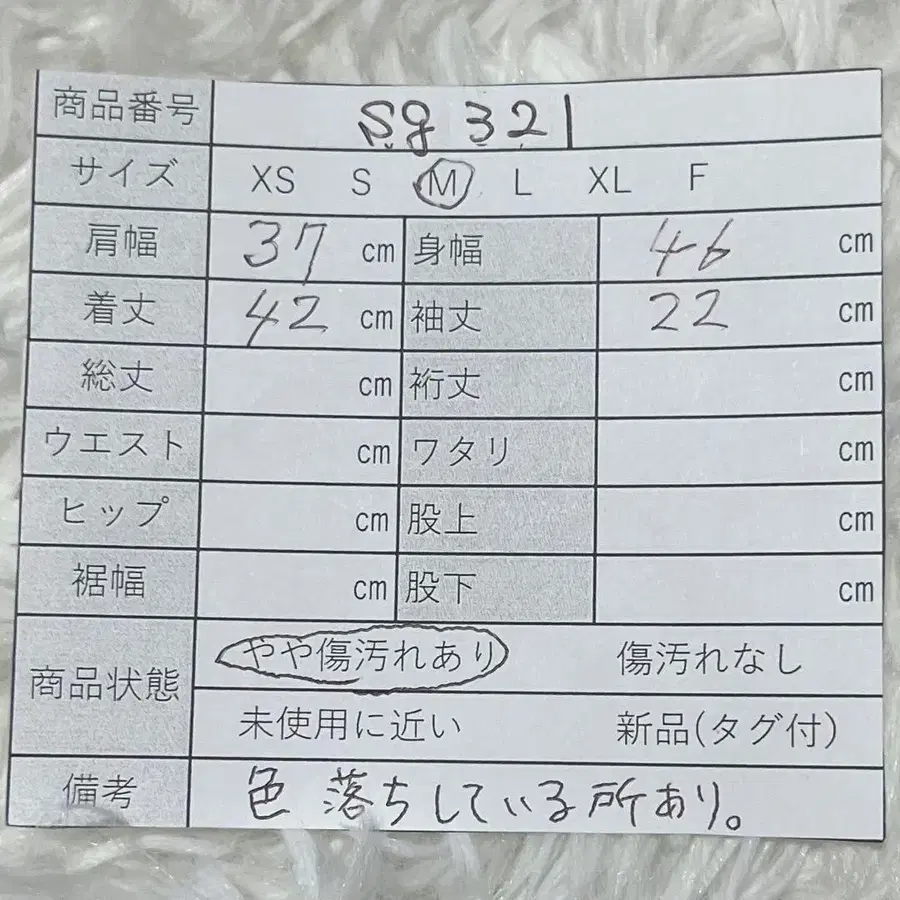 商品番号 sg 321
サイズ XS S M L XL F
肩幅 37 cm 身幅 46 cm
着丈 42 cm 袖丈 22 cm
総丈 cm 裄丈 cm
ウエスト cm ワタリ cm
ヒップ cm 股上 cm
裾幅 cm 股下 cm
商品状態 やや傷汚れあり 傷汚れなし
未使用に近い 新品(タグ付)
備考 色落ちしている所あり。